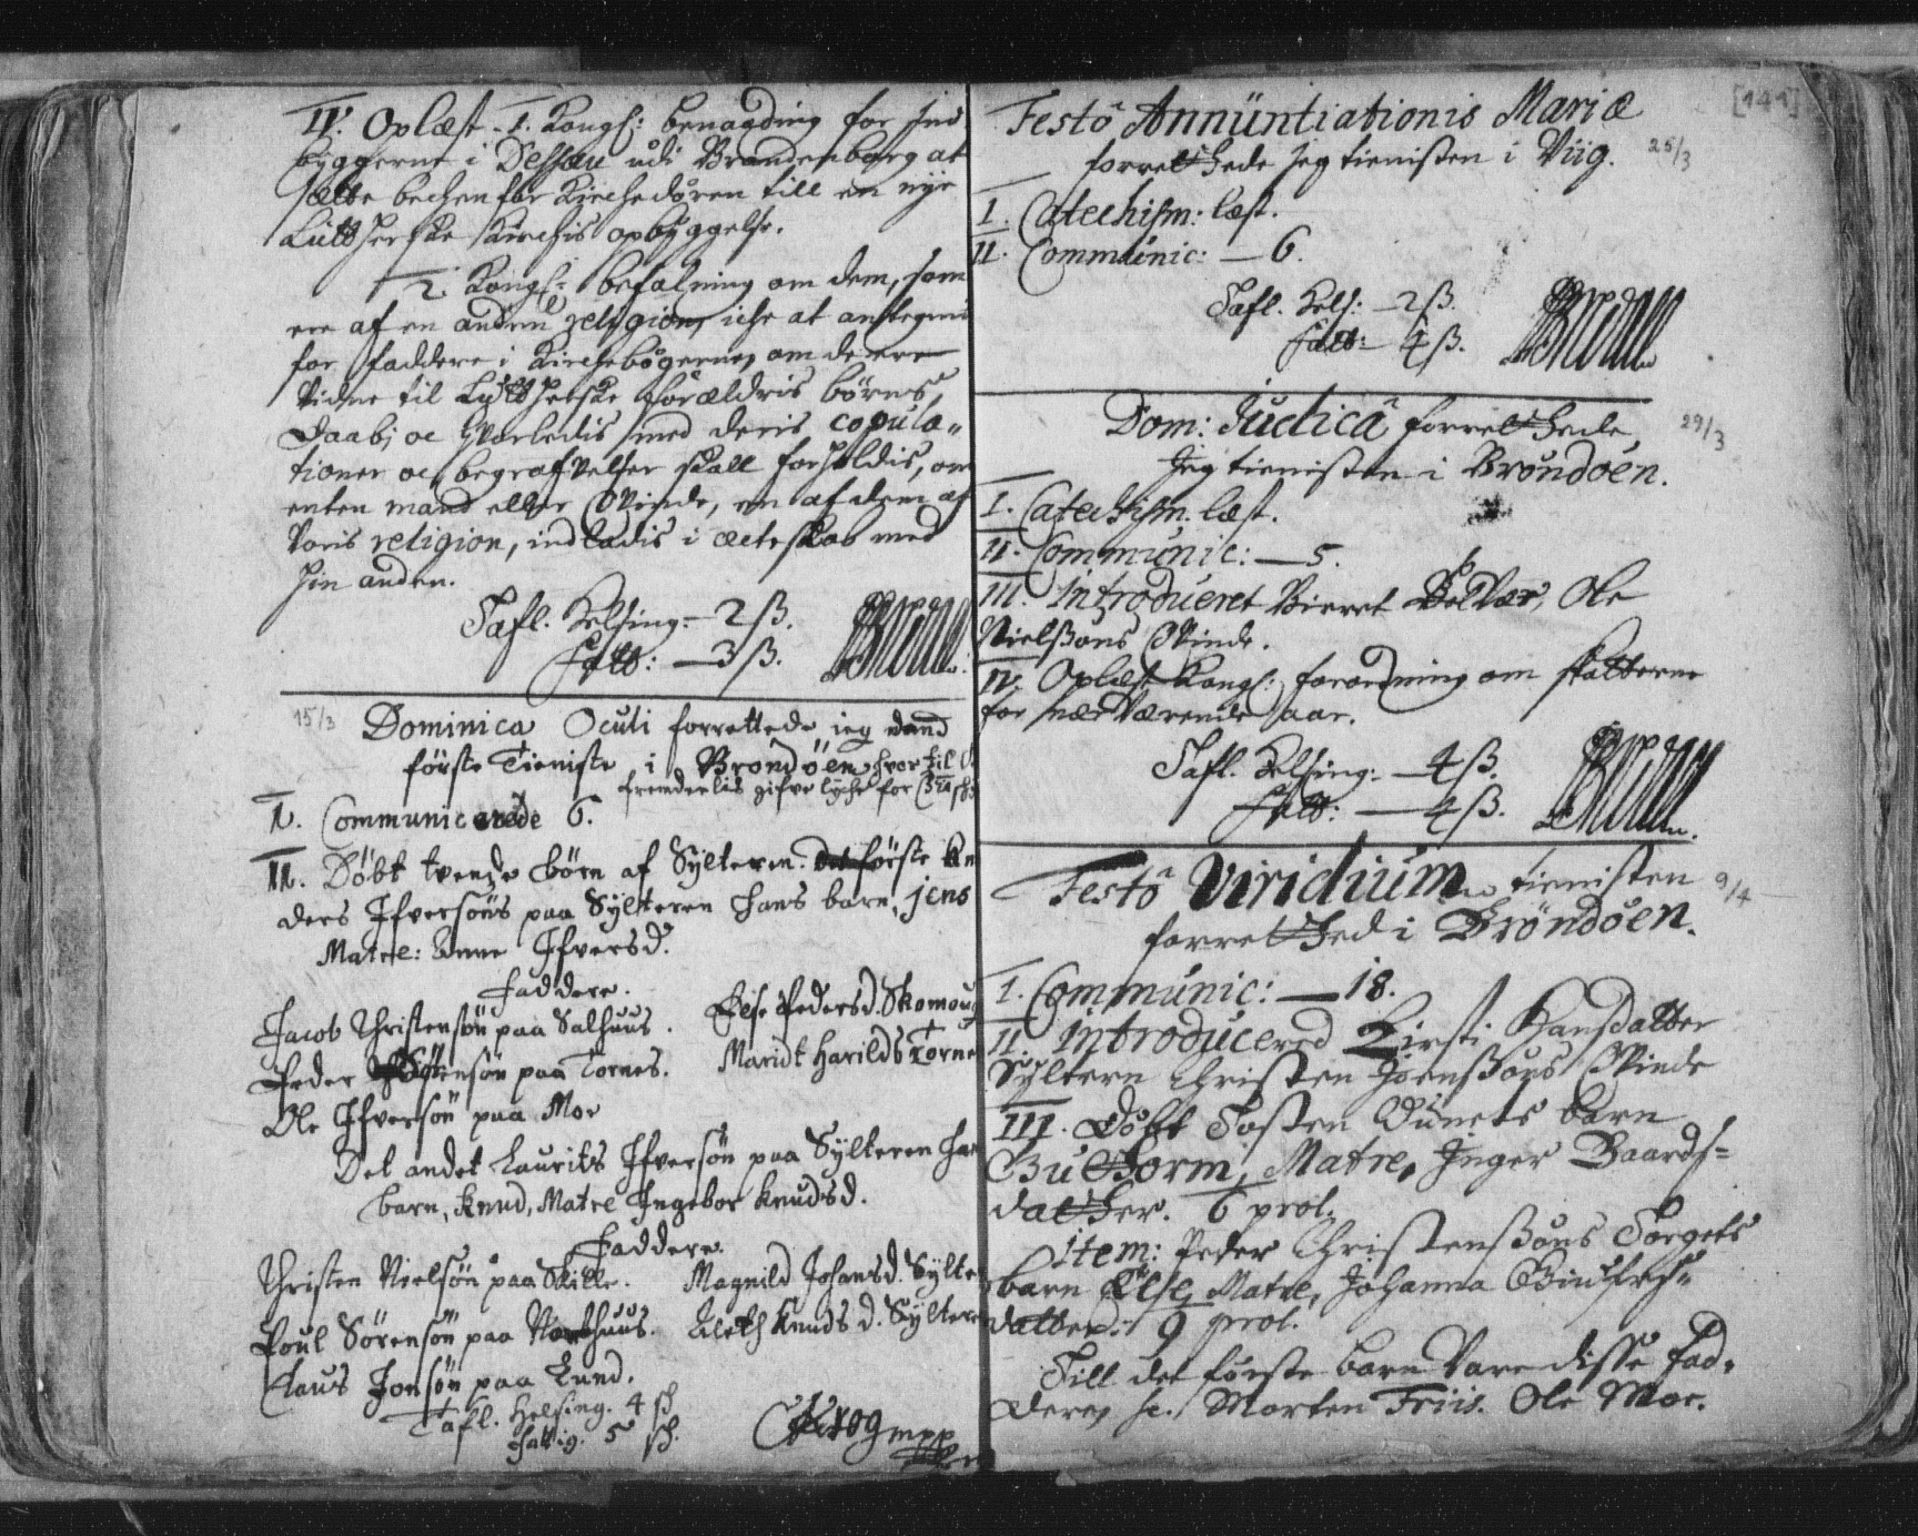 IV. Oplæst. I. Kongl: benaading for Ind
byggerne i Dessau udi Brandenborg at
sætte bechen for Kirchedøren till en nye
Lutt herske Kirchis opbyggelse.
2. Kongl: befalning om dem, som
ere af en anden religion, iche at antegnis
for faddere i Kirchebøgerne, om de ere
Vidne til Lutt herske forældris børns
Daab; oc hvorledis med deris copula„
tioner oc begrafvelser skall forholdis, om
enten mand eller Qvinde, en af dem af
Voris religion, indladis i ecteskab med
hin anden.
Tafl. Helsing: — 2 ß.
Fatt: — 3 ß.
15/3
Dominica Oculi forrettede jeg dend
første Tieniste i Brøndöen hvor til
fremdeelis gifve lyche for
I. Communicerede 6.
II. Döbt tvende børn af Sylteren. Det første An
ders Ifversöns paa Sylteren hans barn, jens
Matre: Anne Ifversd.
Faddere.
Jacob Christensön paa Salhuus. Else Pedersd. Skomoug
Peder Sörensön paa Tornes. Maridt Harilds Torne
Ole Ifversön paa Moe
Det andet Laurits Ifversön paa Sylteren han
barn, Knud, Matre Ingebor Knudsd.
Faddere.
Christen Nielsön paa Skille. Magnild Johansd. Sylte
Poul Sörensön paa Norhuus. Aleth Knuds d. Syltere
Claus Jonsön paa Lund.
Tafl. Helsing. 4 ß
Fattig. 5 ß.
CKrog mpp
[141]
Festo Annuntiationis Mariæ
25/3
forrettede jeg tienisten i Viig.
I. Catechism: læst.
II. Communic: — 6.
Tafl. Hels: — 2 ß.
Fatt: — 4 ß.
Dom: Judica forrettede
29/3
Jeg tienisten i Brøndøen.
I. Catechism. læst.
II. Communic: — 5.
III. Introduceret Birret Bolvær, Ole
Nielßøns Qvinde.
IV. Oplæst Kongl: forordning om skatterne
for nærværende aar.
Tafl. Helsing: — 4 ß.
Fatt: — 4 ß.
Festo Viridium tienisten
9/4
forretted i Brøndøen.
I. Communic: — 18.
II. Introducered Kirsti Hansdatter
Syltern Christen Joenßøns Qvinde
III. Døbt Tosten barn
Guttorm, Matre, Inger Baards=
datter. 6 prol.
item: Peder Christenßøns Torgets
barn Else, Matre, Johanna
datter. 9 prol.
Till det første barn vare disse fad„
dere, sc. Morten Friis. Ole Moe.